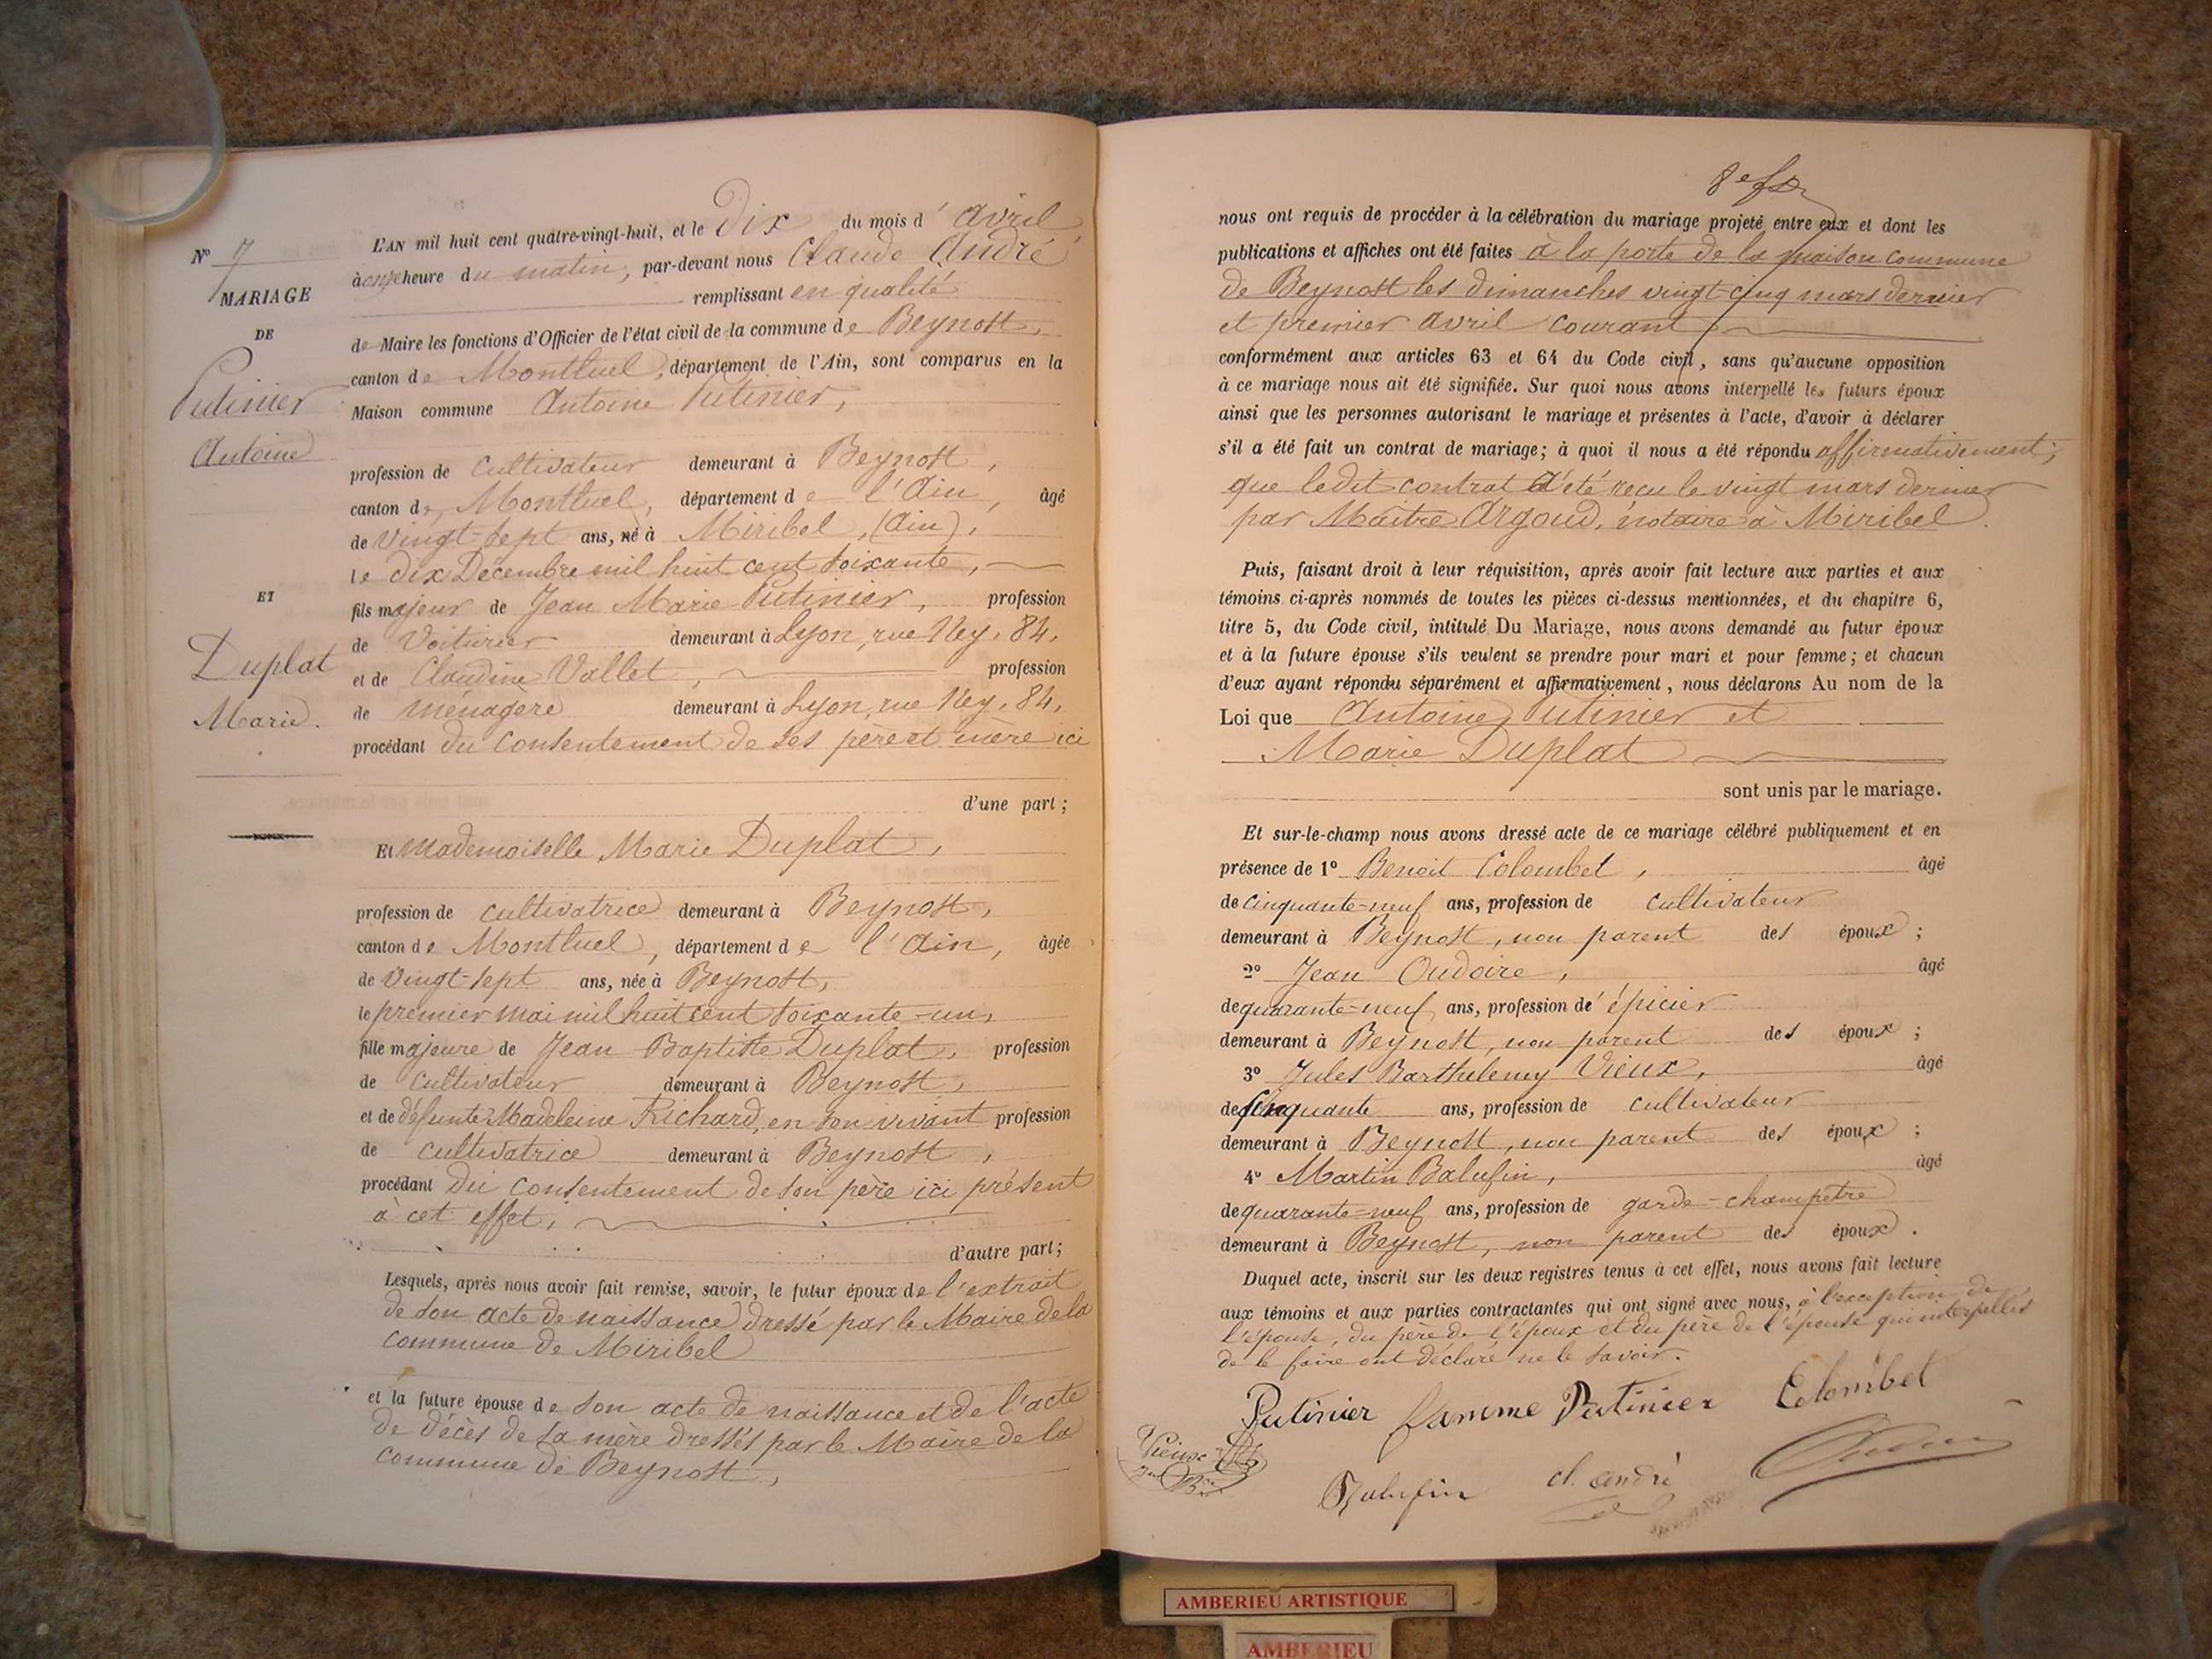 N° 7
MARIAGE
DE
Putinier
Antoine
ET
Duplat
Marie.
L'AN mil huit cent quatre-vingt-huit, et le Dix du mois d'avril,
à onze heure du matin, par-devant nous Claude André
remplissant en qualité
de Maire les fonctions d'Officier de l'état civil de la commune de Beynost,
canton de Montluel, département de l'Ain, sont comparus en la
Maison commune Antoine Putinier,
profession de cultivateur demeurant à Beynost,
canton de Montluel, département de l'Ain, âgé
de vingt-sept ans, né à Miribel, (Ain),
le dix Décembre mil huit cent soixante,
fils majeur de Jean Marie Putinier, profession
de Voiturier demeurant à Lyon, rue Ney, 84,
et de Claudine Vallet, profession
de ménagère demeurant à Lyon, rue Ney, 84,
procédant du consentement de ses père et mère ici
d'une part;
Et Mademoiselle Marie Duplat,
profession de cultivatrice demeurant à Beynost,
canton de Montluel, département de l'Ain, âgée
de vingt-sept ans, née à Beynost,
le premier mai mil huit cent soixante-un,
fille majeure de Jean Baptiste Duplat, profession
de cultivateur demeurant à Beynost,
et de défunte Madeleine Richard, en son vivant profession
de cultivatrice demeurant à Beynost,
procédant du consentement de son père ici présent
à cet effet,
d'autre part;
Lesquels, après nous avoir fait remise, savoir, le futur époux de l'extrait
de son acte de naissance dressé par le Maire de la
commune de Miribel
et la future épouse de son acte de naissance et de l'acte
de décès de sa mère dressés par le Maire de la
commune de Beynost,
8e
nous ont requis de procéder à la célébration du mariage projeté entre eux et dont les
publications et affiches ont été faites à la porte de la maison commune
de Beynost les dimanches vingt-cinq mars dernier
et premier avril courant
conformément aux articles 63 et 64 du Code civil, sans qu'aucune opposition
à ce mariage nous ait été signifiée. Sur quoi nous avons interpellé les futurs époux
ainsi que les personnes autorisant le mariage et présentes à l'acte, d'avoir à déclarer
s'il a été fait un contrat de mariage; à quoi il nous a été répondu affirmativement;
que ledit contrat a été reçu le vingt mars dernier
par Maître Argoud, notaire à Miribel.
Puis, faisant droit à leur réquisition, après avoir fait lecture aux parties et aux
témoins ci-après nommés de toutes les pièces ci-dessus mentionnées, et du chapitre 6,
titre 5, du Code civil, intitulé Du Mariage, nous avons demandé au futur époux
et à la future épouse s'ils veulent se prendre pour mari et pour femme; et chacun
d'eux ayant répondu séparément et affirmativement, nous déclarons Au nom de la
Loi que Antoine Putinier et
Marie Duplat
sont unis par le mariage.
Et sur-le-champ nous avons dressé acte de ce mariage célébré publiquement et en
présence de 1° Benoit Colombet, âgé
de cinquante-neuf ans, profession de cultivateur
demeurant à Beynost, non parent des époux;
2° Jean Oudoire, âgé
de quarante-neuf ans, profession d'épicier
demeurant à Beynost, non parent des époux;
3° Jules Barthelemy Vieux, âgé
de cinquante ans, profession de cultivateur
demeurant à Beynost, non parent des époux;
4° Martin Balufin, âgé
de quarante-neuf ans, profession de garde-champêtre
demeurant à Beynost, non parent des époux.
Duquel acte, inscrit sur les deux registres tenus à cet effet, nous avons fait lecture
aux témoins et aux parties contractantes qui ont signé avec nous, à l'exception de
l'épouse, du père de l'époux et du père de l'épouse qui interpellés
de le faire ont déclaré ne le savoir.
Putinier famme Putinier Colombet
Vieux
Balufin cl. andré
AMBERIEU ARTISTIQUE
AMBERIEU